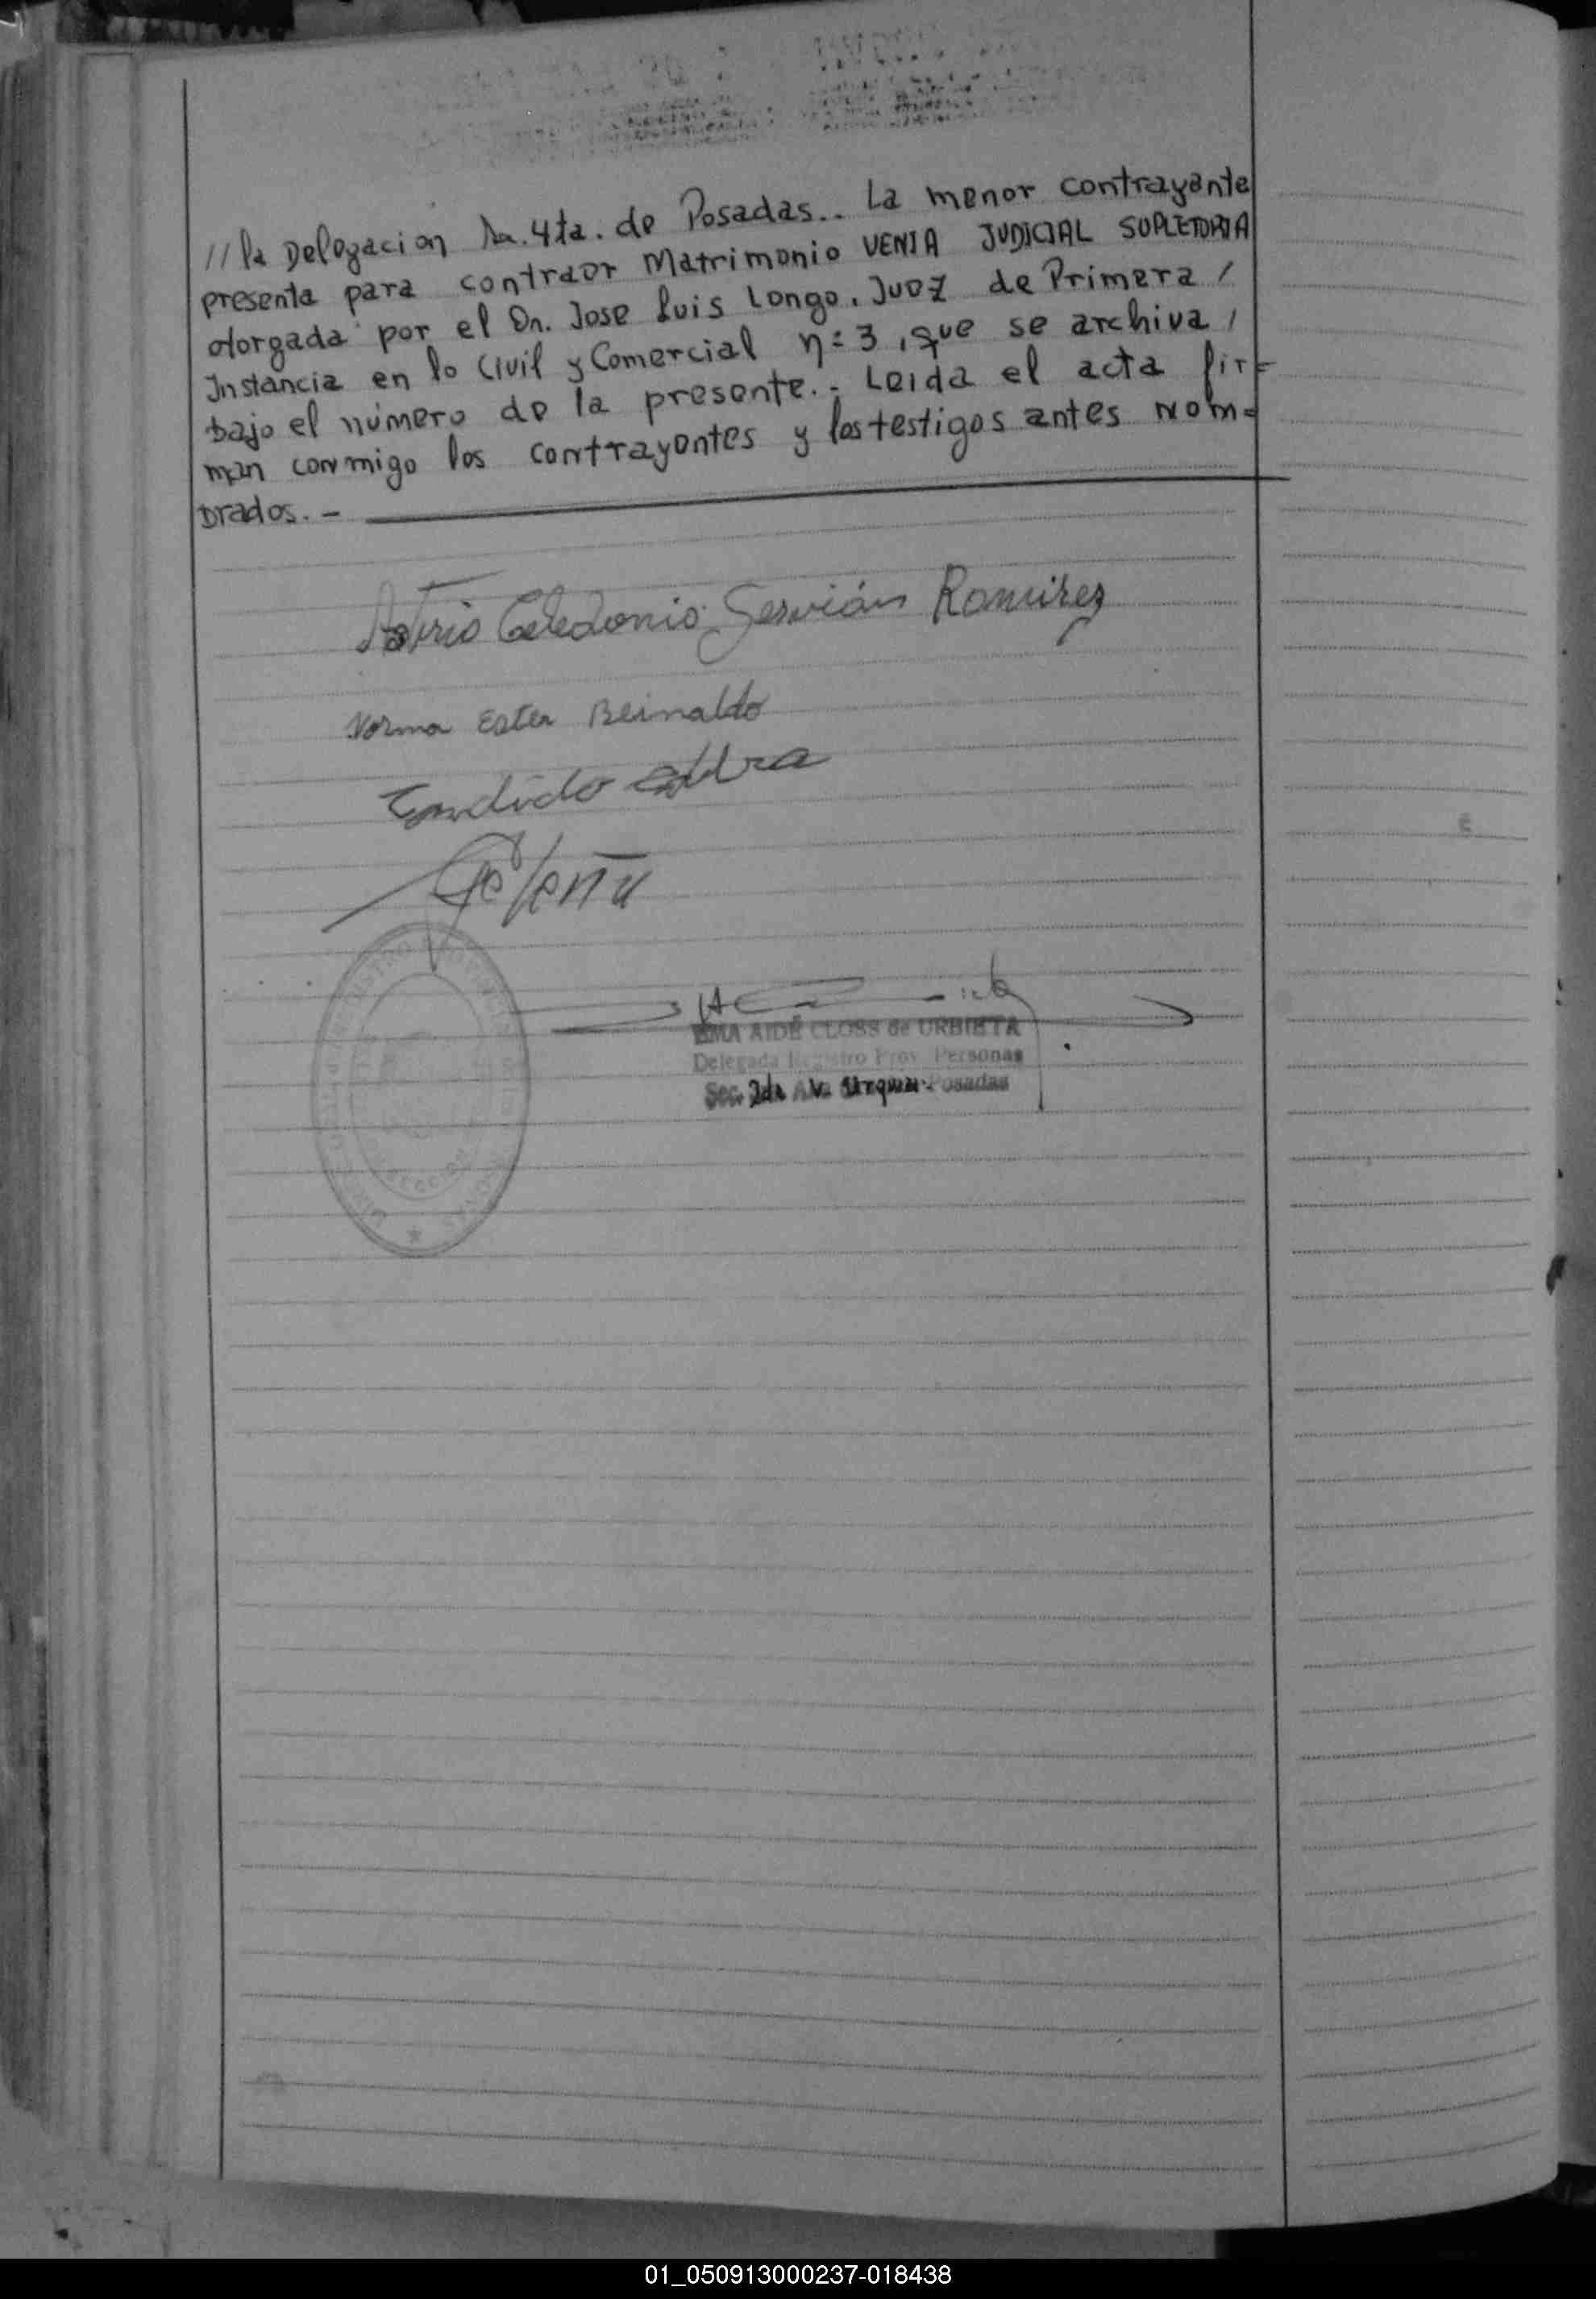 //la Delegacion Sa. 4ta. de Posadas.. La menor contrayente
presenta para contraer Matrimonio VENIA JUDICIAL SUPLETORIA
otorgada por el Dr. Jose Luis Longo, Juez de Primera /
Instancia en lo Civil y Comercial n=3, que se archiva /
bajo el número de la presente.- Leida el acta fir=
man conmigo los contrayentes y los testigos antes nom=
brados. -
Celedonio Servián Ramirez
Norma Ester Beinaldo
Candido
EMA AIDÉ CLOSS de URBIETA
Delegada Registro Prov. Personas
Sec. 2da Urquiza Posadas
01_050913000237-018438